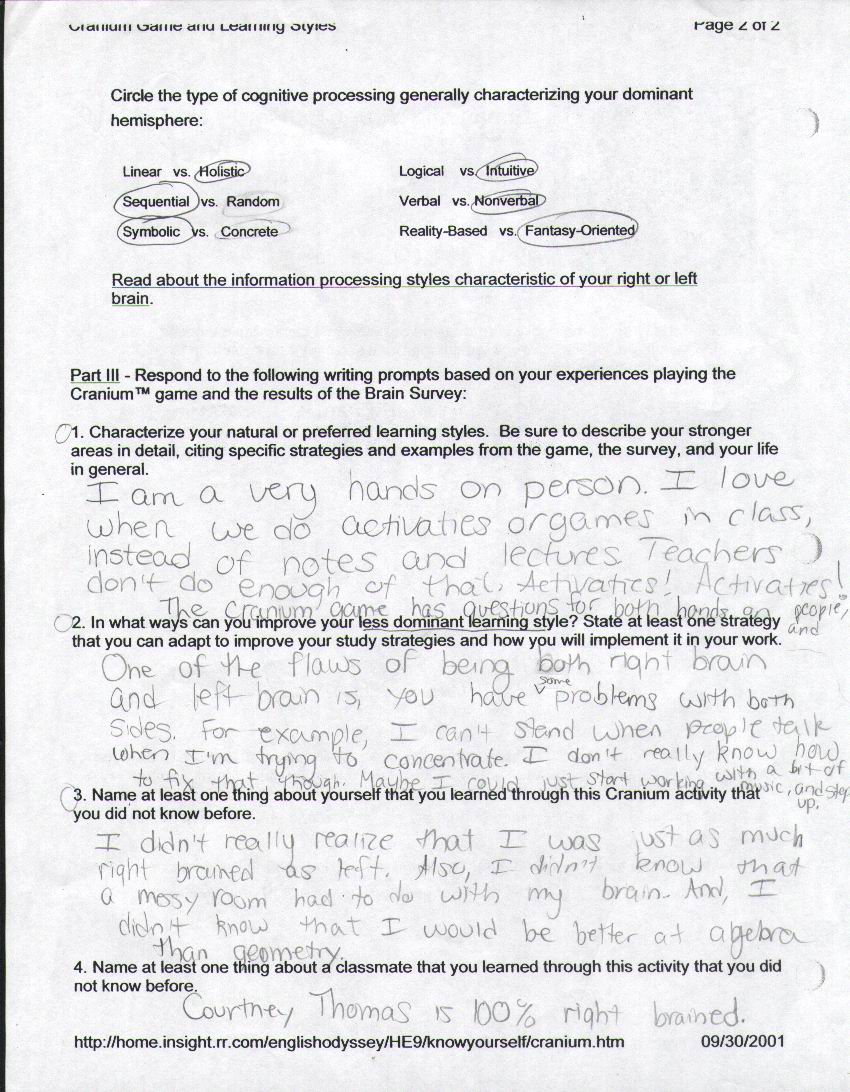 Cranium Game and Learning Styles Page 2 of 2
Circle the type of cognitive processing generally characterizing your dominant
hemisphere:
Linear vs. Holistic Logical vs. Intuitive
Sequential vs. Random Verbal vs. Nonverbal
Symbolic vs. Concrete Reality-Based vs. Fantasy-Oriented
Read about the information processing styles characteristic of your right or left
brain.
Part III - Respond to the following writing prompts based on your experiences playing the
Cranium™ game and the results of the Brain Survey:
1. Characterize your natural or preferred learning styles. Be sure to describe your stronger
areas in detail, citing specific strategies and examples from the game, the survey, and your life
in general.
I am a very hands on person. I love
when we do activaties or games in class,
instead of notes and lectures. Teachers
don't do enough of that. Activaties! Activaties!
The Cranium game has questions for both hands on people,
and
2. In what ways can you improve your less dominant learning style? State at least one strategy
that you can adapt to improve your study strategies and how you will implement it in your work.
One of the flaws of being both right brain
and left brain is, you have some problems with both
sides. For example, I can't stand when people talk
when I'm trying to concentrate. I don't really know how
to fix that, though. Maybe I could just start working with a bit of
music, and step
up.
3. Name at least one thing about yourself that you learned through this Cranium activity that
you did not know before.
I didn't really realize that I was just as much
right brained as left. Also, I didn't know that
a messy room had to do with my brain. And, I
didn't know that I would be better at algebra
than geometry.
4. Name at least one thing about a classmate that you learned through this activity that you did
not know before.
Courtney Thomas is 100% right brained.
http://home.insight.rr.com/englishodyssey/HE9/knowyourself/cranium.htm 09/30/2001